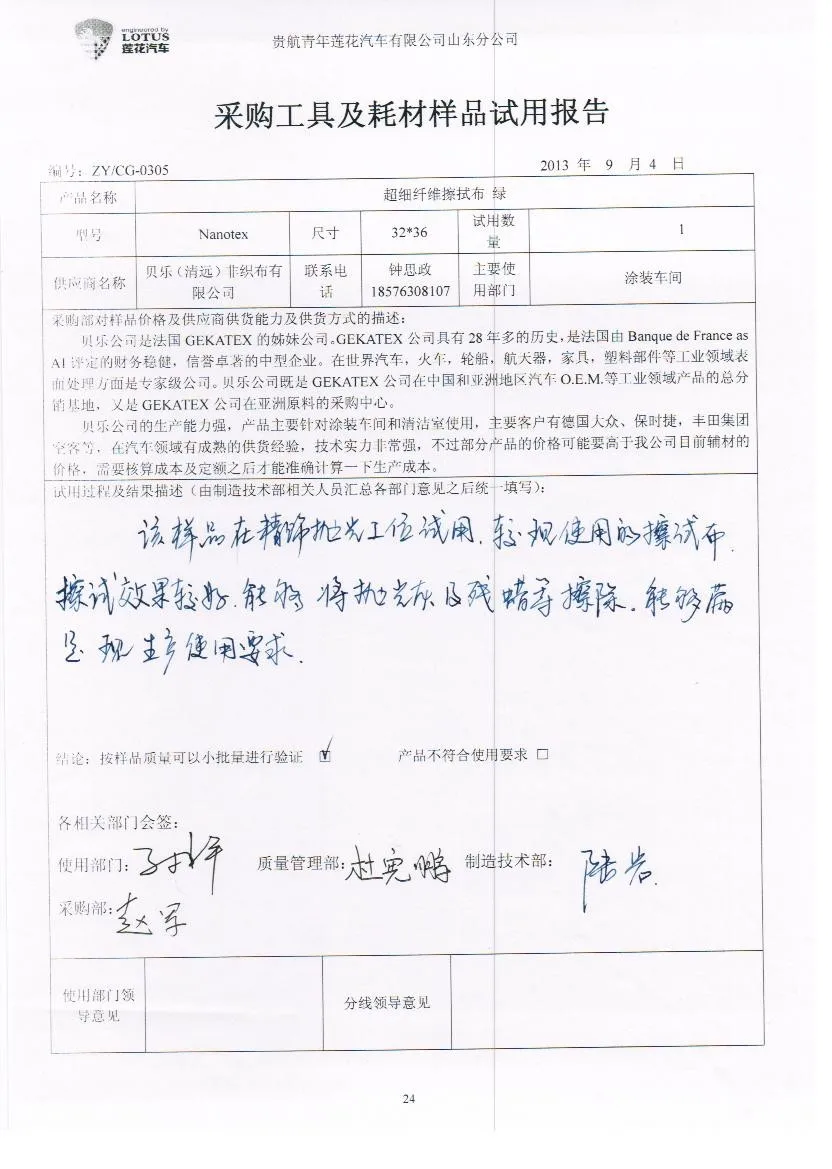 engineered by
LOTUS
莲花汽车
贵航青年莲花汽车有限公司山东分公司
采购工具及耗材样品试用报告
编号：ZY/CG-0305
2013 年 9 月 4 日
产品名称 超细纤维擦拭布 绿
型号 Nanotex 尺寸 32*36 试用数量 1
供应商名称 贝乐（清远）非织布有限公司 联系电话 钟思政 18576308107 主要使用部门 涂装车间
采购部对样品价格及供应商供货能力及供货方式的描述：
贝乐公司是法国 GEKATEX 的姊妹公司。GEKATEX 公司具有 28 年多的历史，是法国由 Banque de France as
A1 评定的财务稳健，信誉卓著的中型企业。在世界汽车，火车，轮船，航天器，家具，塑料部件等工业领域表
面处理方面是专家级公司。贝乐公司既是 GEKATEX 公司在中国和亚洲地区汽车 O.E.M.等工业领域产品的总分
销基地，又是 GEKATEX 公司在亚洲原料的采购中心。
贝乐公司的生产能力强，产品主要针对涂装车间和清洁室使用，主要客户有德国大众、保时捷，丰田集团
空客等，在汽车领域有成熟的供货经验，技术实力非常强，不过部分产品的价格可能要高于我公司目前辅材的
价格，需要核算成本及定额之后才能准确计算一下生产成本。
试用过程及结果描述（由制造技术部相关人员汇总各部门意见之后统一填写）：
该样品在精饰抛光工位试用，较现使用的擦试布，
擦试效果较好，能够将抛光灰及残蜡等擦除，能够满
足现生产使用要求．
结论：按样品质量可以小批量进行验证 ☑ 产品不符合使用要求 □
各相关部门会签：
使用部门： 质量管理部：杜宪鹏 制造技术部：陆岩
采购部：赵军
使用部门领导意见 分线领导意见
24